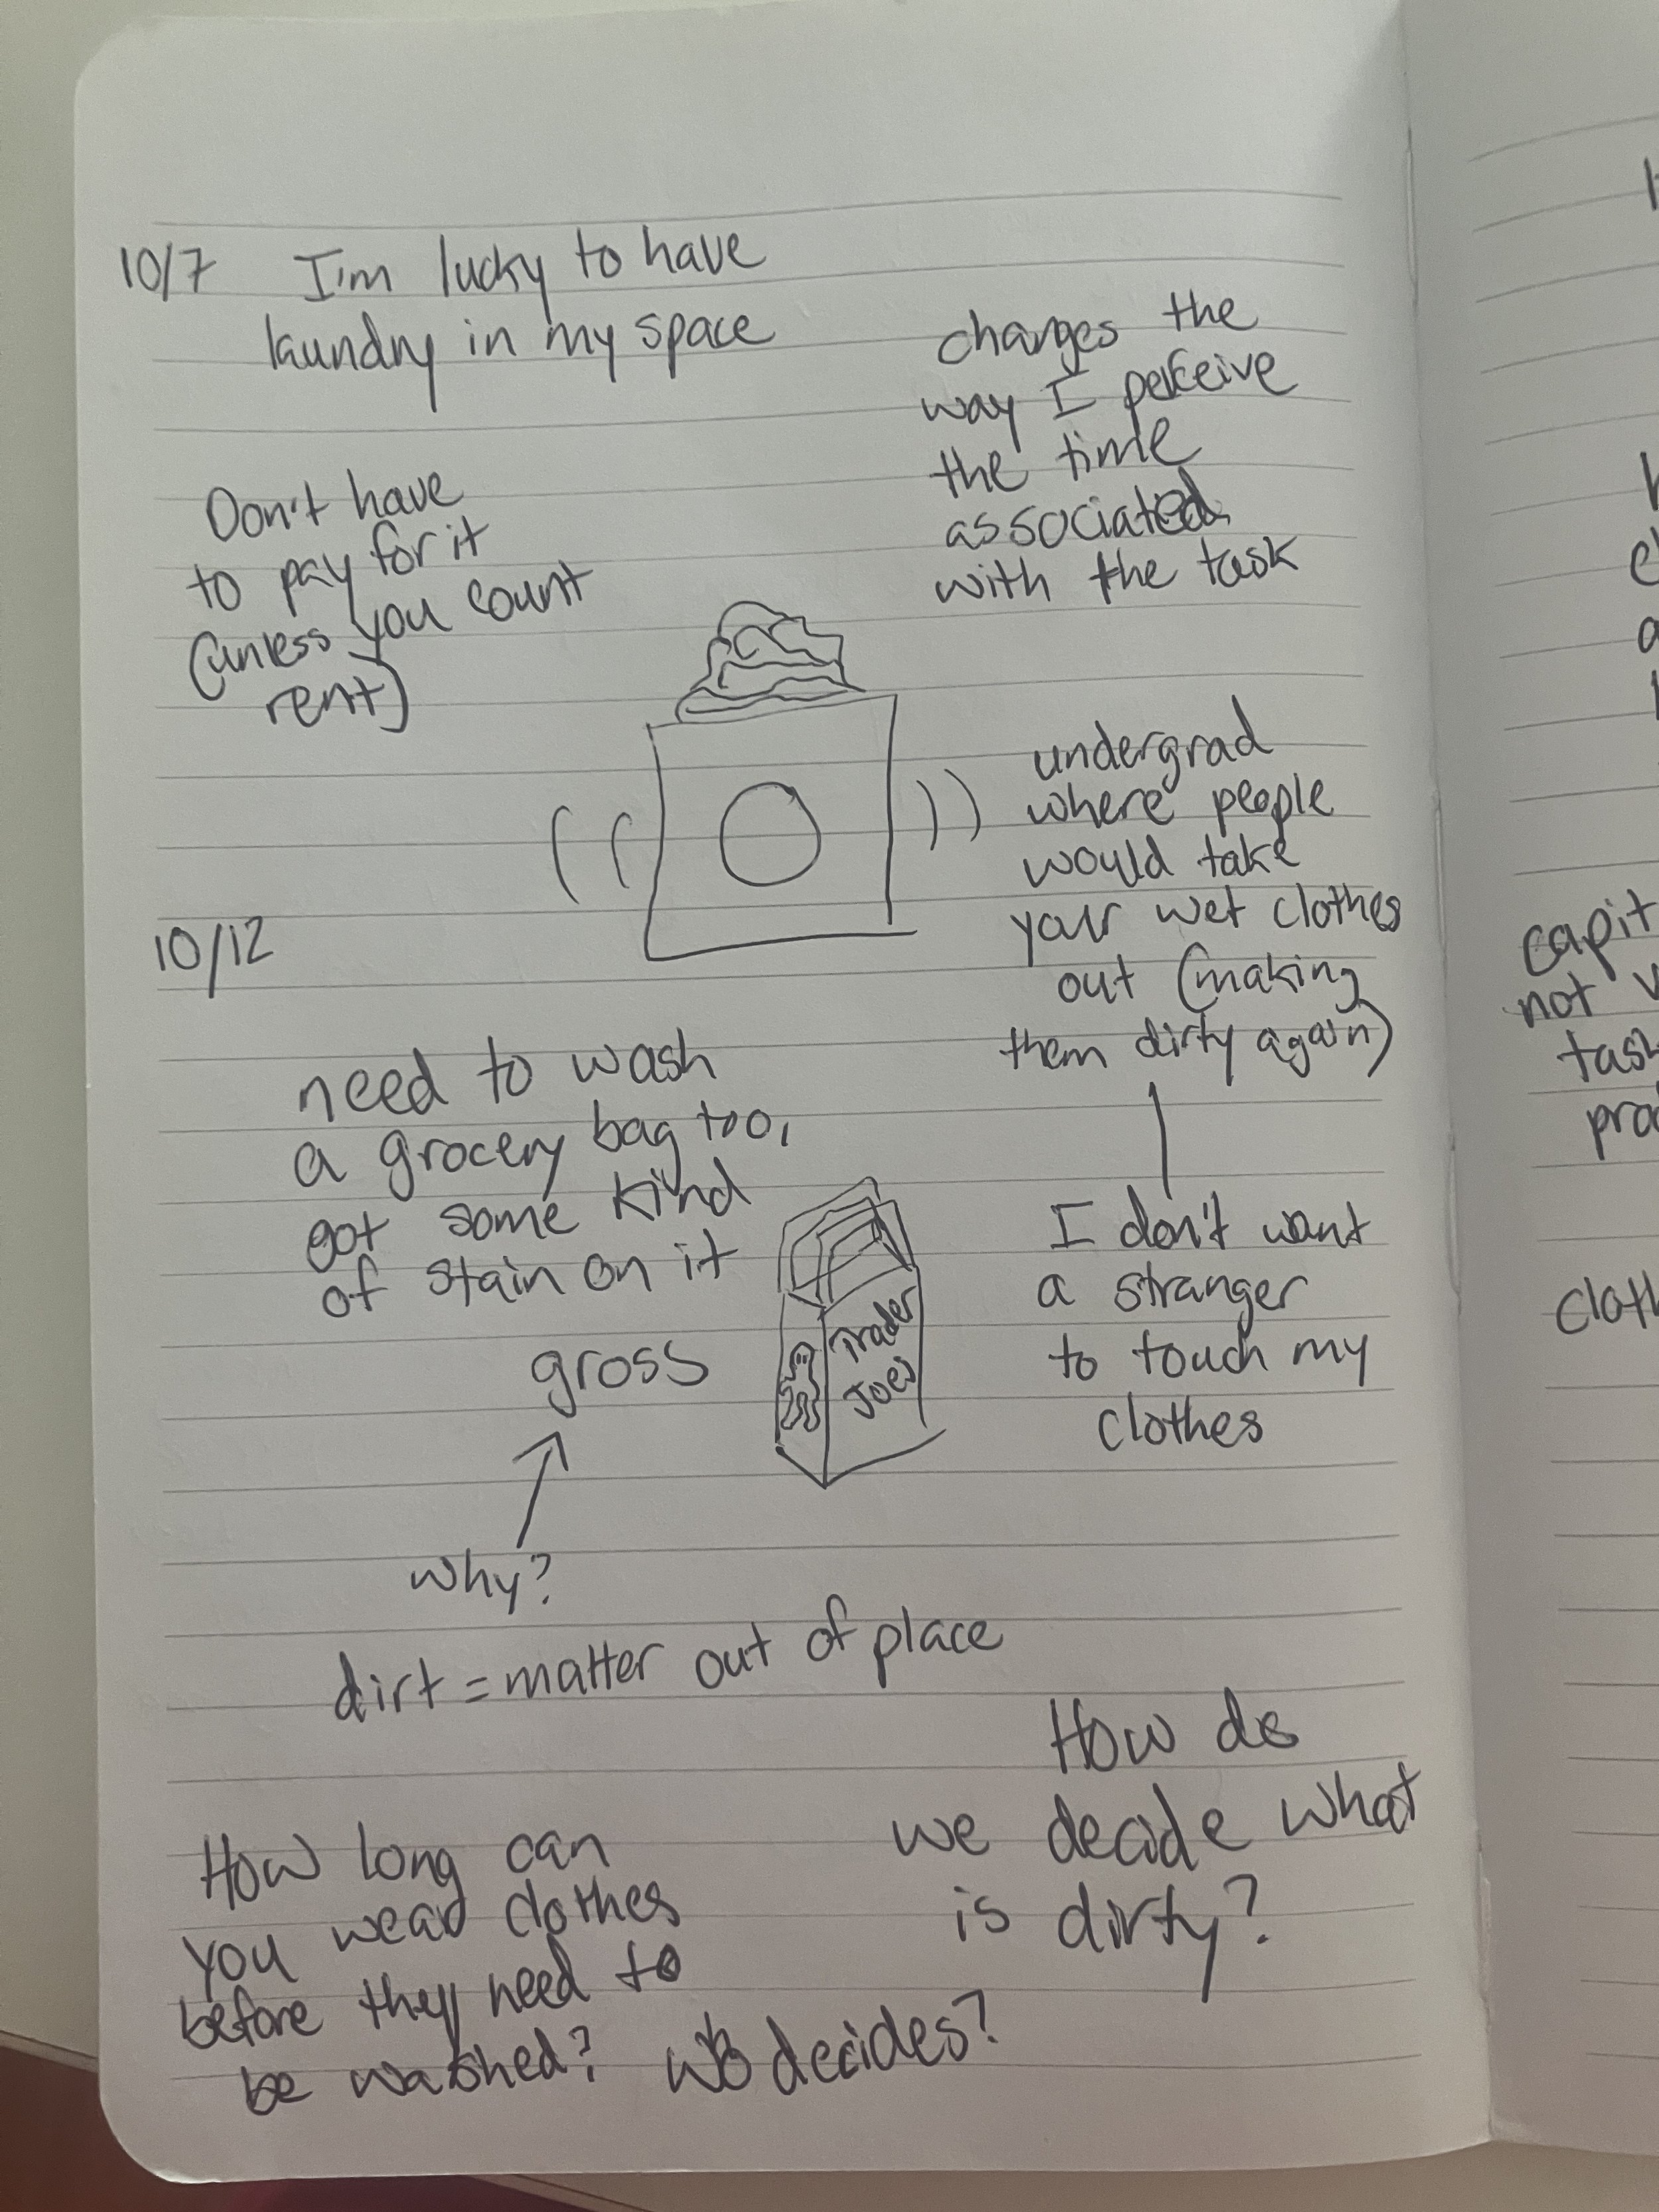 10/7 I'm lucky to have
laundry in my space
changes the
way I perceive
the time
associated
with the task
Don't have
to pay for it
(unless you count
rent)
undergrad
where people
would take
your wet clothes
out (making
them dirty again)
I don't want
a stranger
to touch my
clothes
10/12
need to wash
a grocery bag too,
got some kind
of stain on it
gross
Trader
Joes
why?
dirt = matter out of place
How do
we decide what
is dirty?
How long can
you wear clothes
before they need to
be washed? who decides?
capit
not
task
pro
cloth